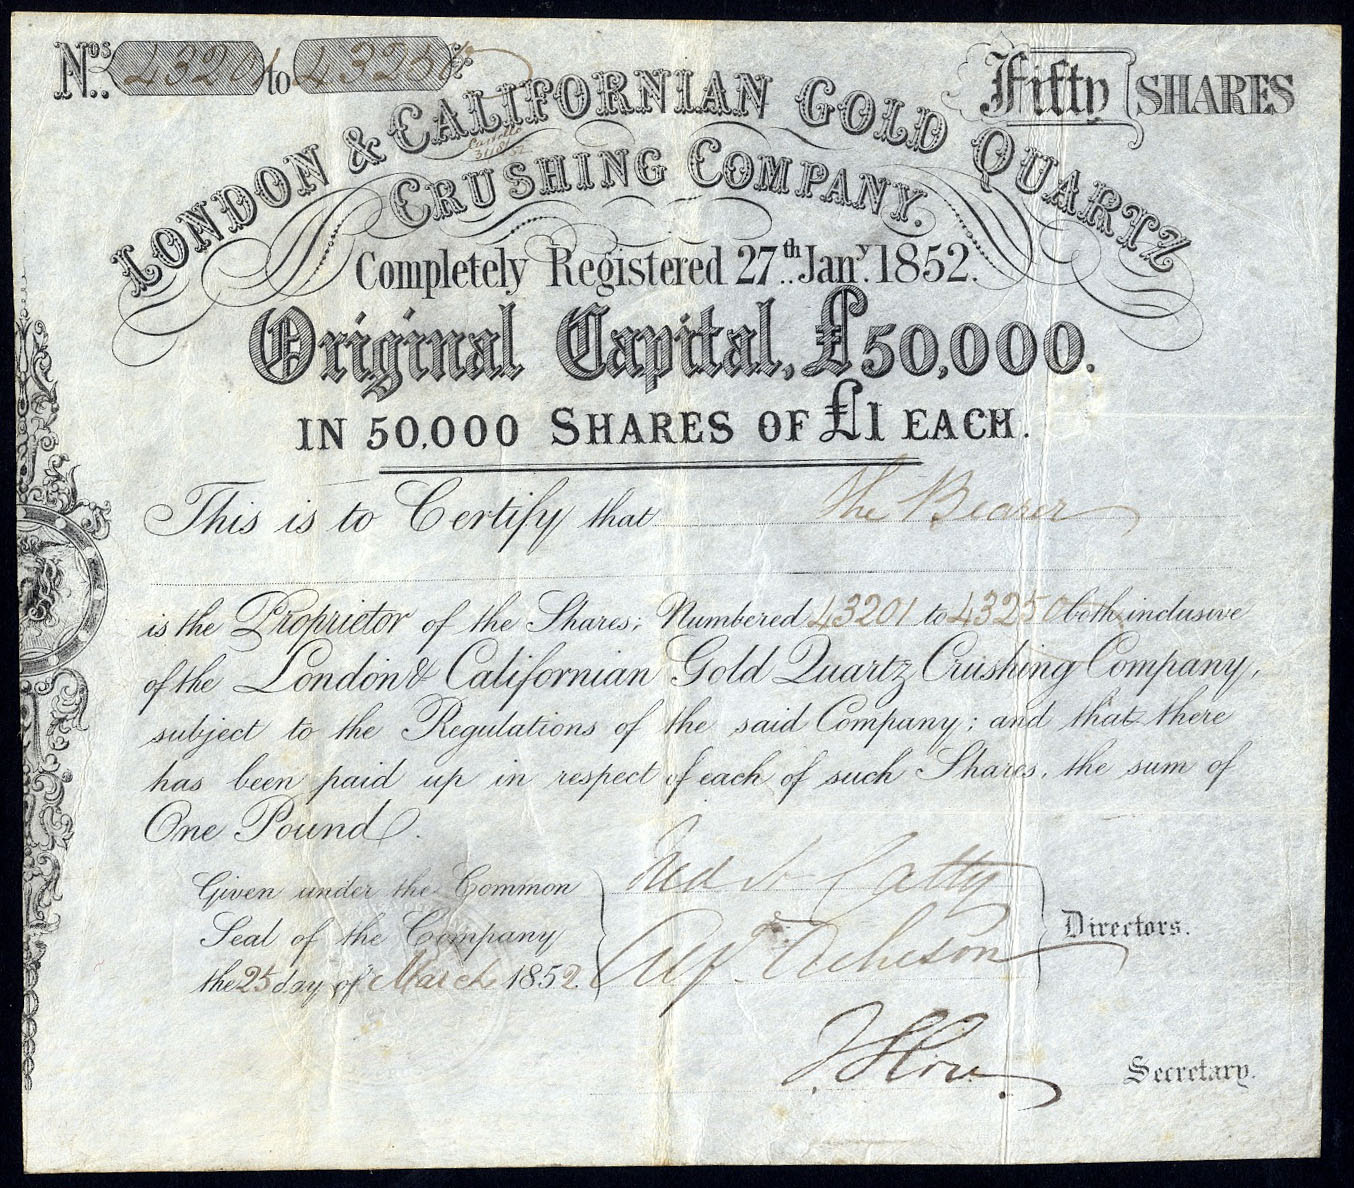 Nos. 43201 to 43250
Fifty SHARES
LONDON & CALIFORNIAN GOLD QUARTZ
CRUSHING COMPANY.
Completely Registered 27th Jany. 1852.
Original Capital, £50,000.
IN 50,000 SHARES OF £1 EACH.
This is to Certify that the Bearer
is the Proprietor of the Shares; Numbered 43201 to 43250 both inclusive
of the London & Californian Gold Quartz Crushing Company,
subject to the Regulations of the said Company; and that there
has been paid up in respect of each of such Shares, the sum of
One Pound.
Given under the Common
Seal of the Company
the 25 day of March 1852.
Directors.
Secretary.